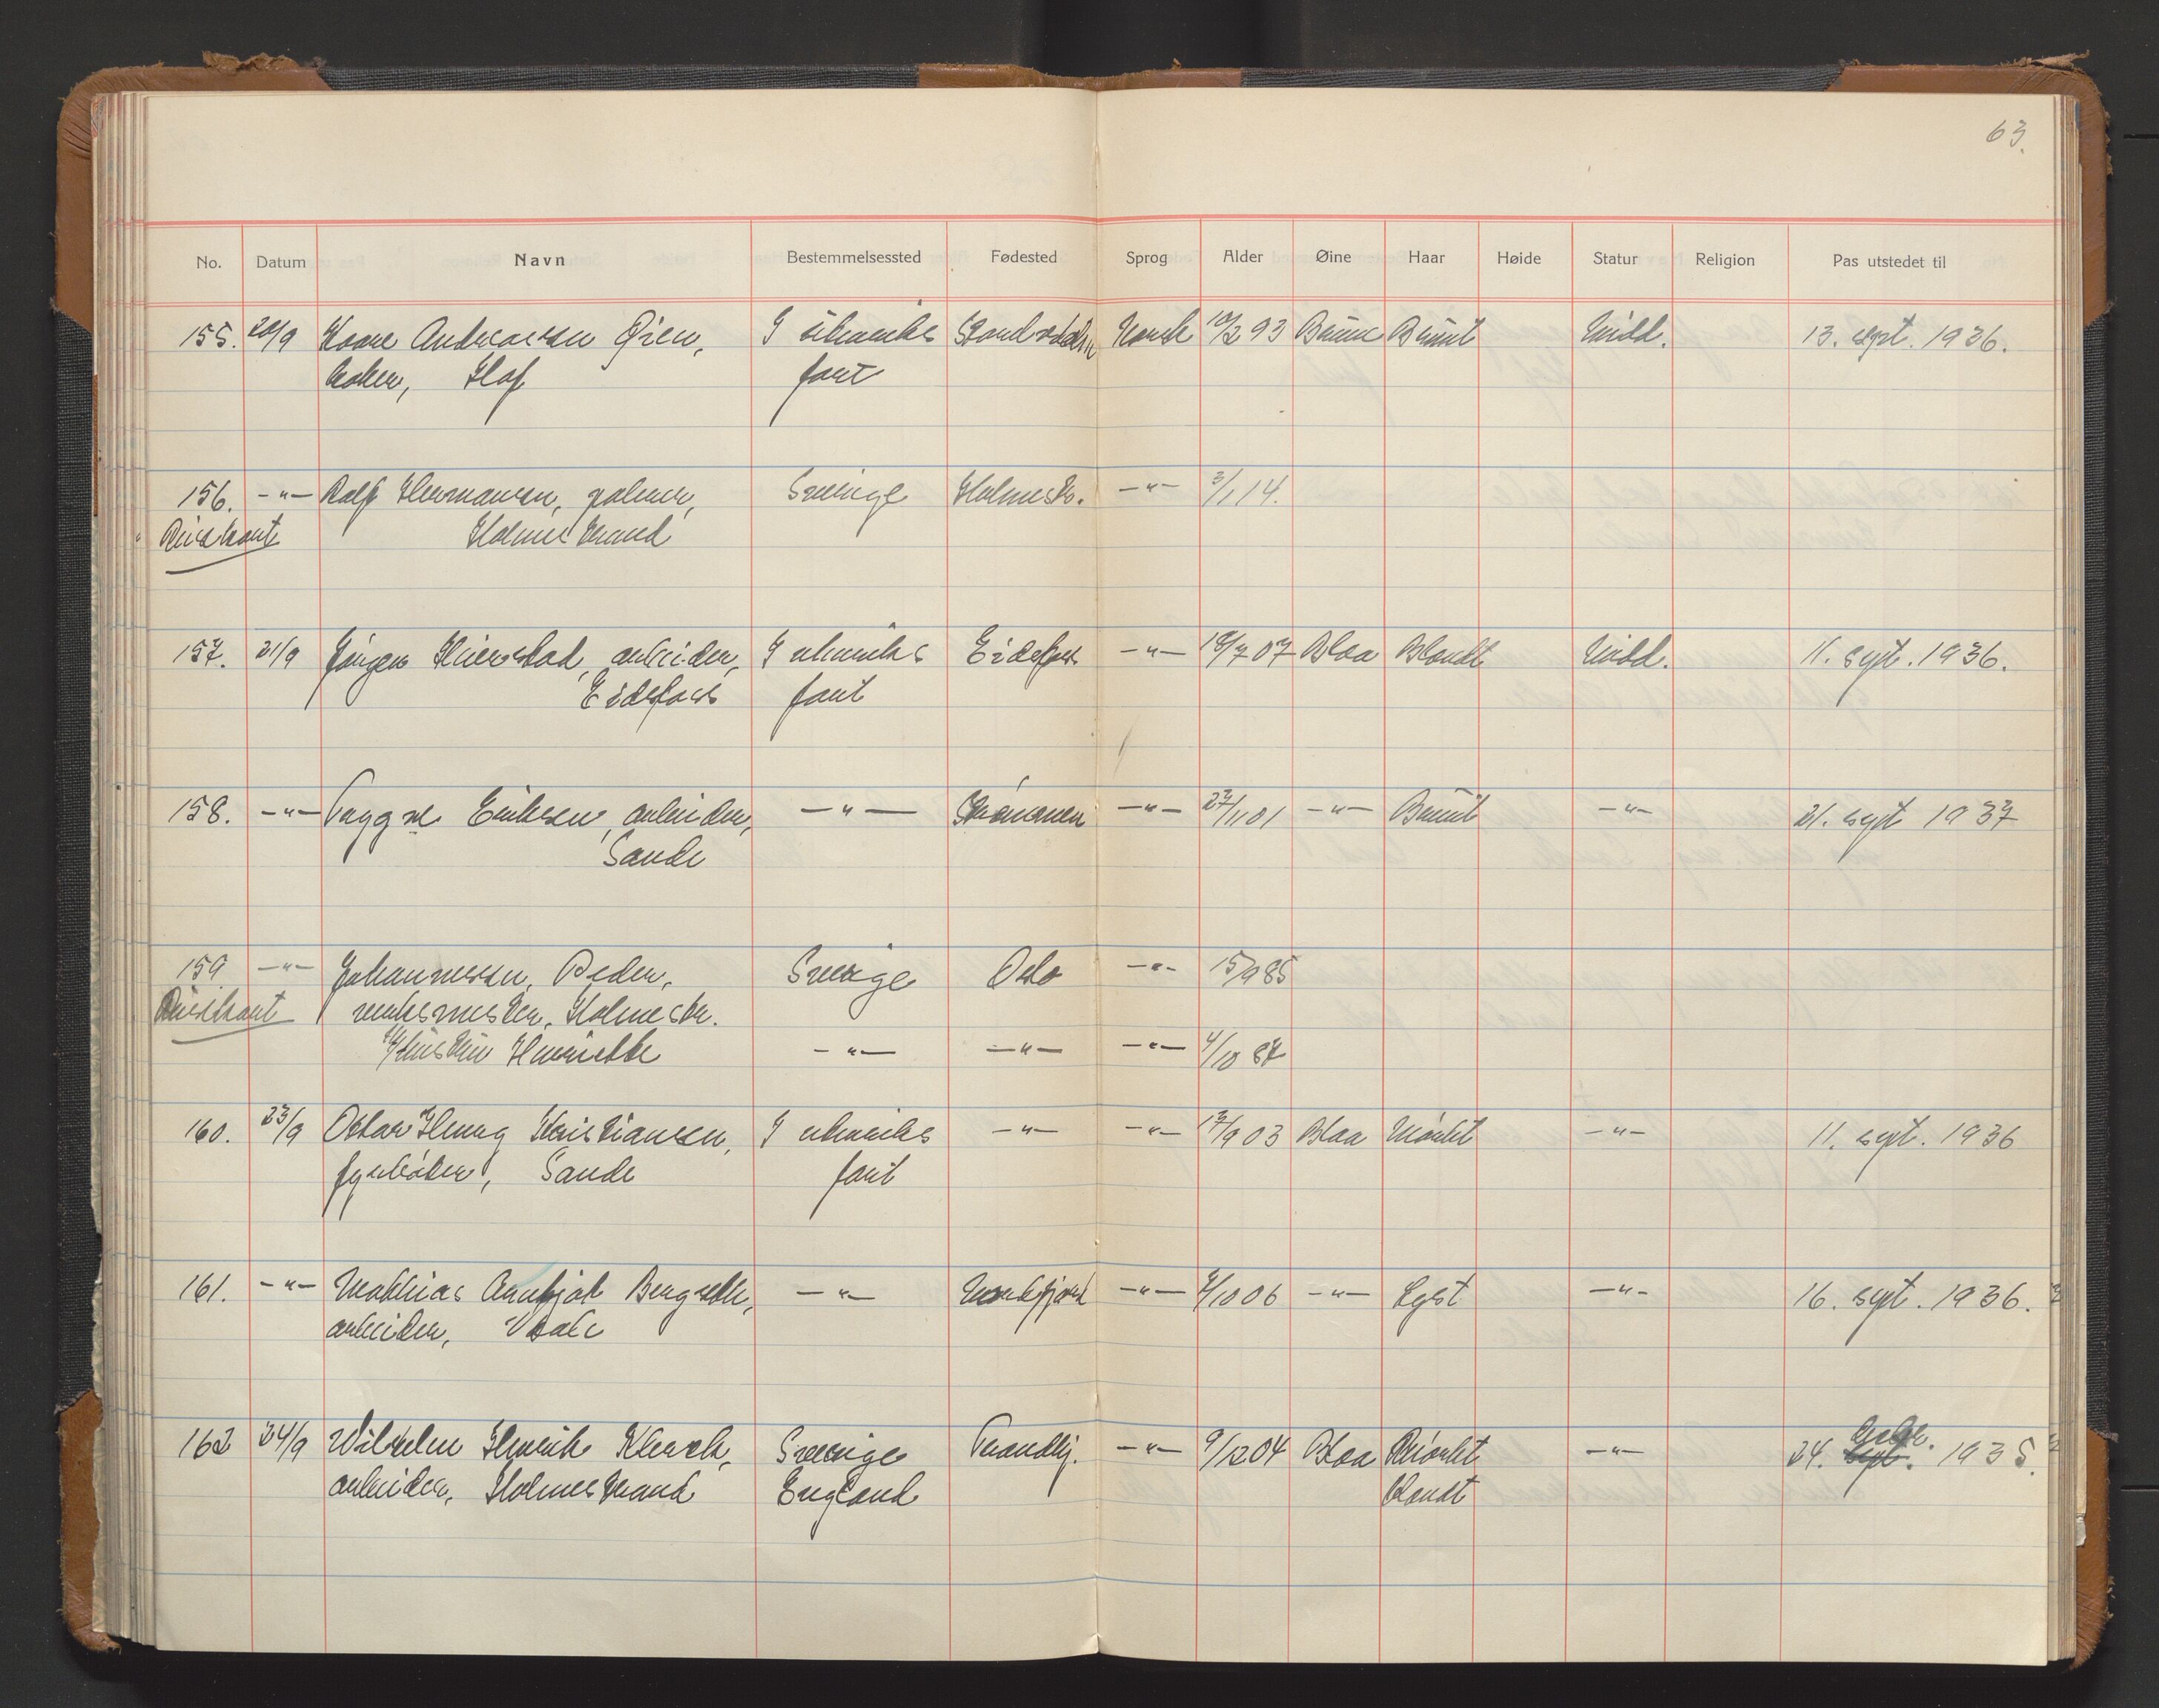 63.
No. Datum Navn Bestemmelsessted Fødested Sprog Alder Øine Haar Høide Statur Religion Pas utstedet til
155. 20/9 Kaare Andreassen Øien, I utenriks Norsk 10/2 93 Brune Brunt Midd. 13. sept. 1936.
baker, Hof fart
156. -"- Rolf Hermansen, Sverige Holmestr. -"- 3/1 14.
Reisekort Holmestrand
157. 21/9 Jørgen arbeider, I utenriks Eidsfoss -"- 07 Blaa Blondt Midd. 11. sept. 1936.
Eidsfoss fart
158. -"- Eriksen, arbeider, -"- Strømmen -"- 27/11 01 -"- Brunt -"- 21. sept 1937
Sande
159 -"- Johannessen, Peder, Sverige Oslo -"- 15/9 85
Reisekort verksmester, Holmestr.
Henriette -"- -"- -"- 4/10 87
160. 23/9 Oskar Henry Kristiansen, I utenriks -"- -"- 17/9 03 Blaa Mørkt -"- 11. sept. 1936
fyrbøter, Sande fart
161. -"- Mathias Bergseth, -"- -"- 4/10 06 -"- Lyst -"- 16. sept. 1936.
arbeider,
162 24/9 Wilhelm Henrik Sverige Trondhj. -"- 9/12 04 Blaa Mørkt -"- 24. sept. 1935.
arbeider, Holmestrand England blondt